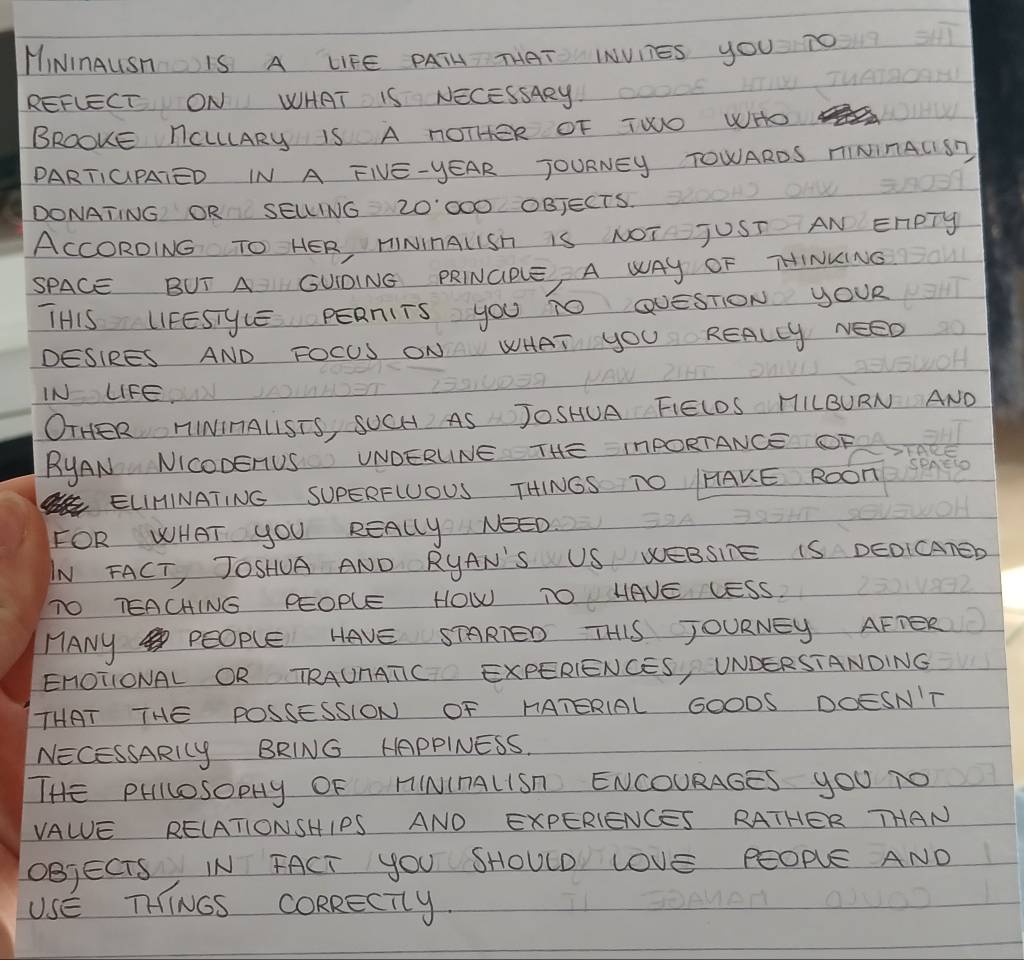 MINIMALISM IS A LIFE PATH THAT INVITES YOU TO
REFLECT ON WHAT IS NECESSARY.
BROOKE MCLLARY IS A MOTHER OF TWO WHO
PARTICIPATED IN A FIVE-YEAR JOURNEY TOWARDS MINIMALISM,
DONATING OR SELLING 20'000 OBJECTS.
ACCORDING TO HER, MINIMALISM IS NOT JUST AN EMPTY
SPACE BUT A GUIDING PRINCIPLE, A WAY OF THINKING.
THIS LIFESTYLE PERMITS YOU TO QUESTION YOUR
DESIRES AND FOCUS ON WHAT YOU REALLY NEED
IN LIFE.
OTHER MINIMALISTS, SUCH AS JOSHUA FIELDS MILBURN AND
RYAN NICODEMUS UNDERLINE THE IMPORTANCE OF
ELIMINATING SUPERFLUOUS THINGS TO MAKE ROOM → FARE SPAZIO
FOR WHAT YOU REALLY NEED.
IN FACT, JOSHUA AND RYAN'S US WEBSITE IS DEDICATED
TO TEACHING PEOPLE HOW TO HAVE LESS.
MANY PEOPLE HAVE STARTED THIS JOURNEY AFTER
EMOTIONAL OR TRAUMATIC EXPERIENCES, UNDERSTANDING
THAT THE POSSESSION OF MATERIAL GOODS DOESN'T
NECESSARILY BRING HAPPINESS.
THE PHILOSOPHY OF MINIMALISM ENCOURAGES YOU TO
VALUE RELATIONSHIPS AND EXPERIENCES RATHER THAN
OBJECTS, IN FACT YOU SHOULD LOVE PEOPLE AND
USE THINGS CORRECTLY.